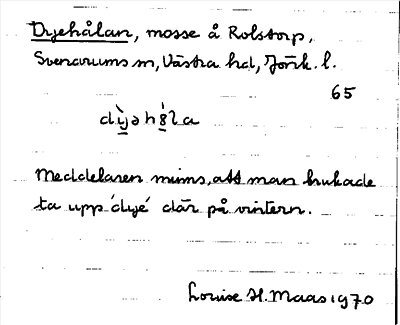 Dyehålan, mosse å Rolstorp,
Svenarums sn, Västra hd, Jönk. l.
65
Meddelaren minns, att man brukade
ta upp 'dye' där på vintern.
Louise H. Maas 1970